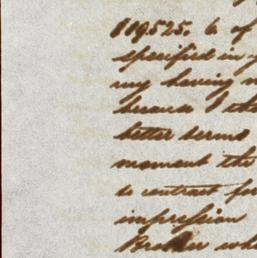 119525. & of
specified in
my having
because I
better terms
moment the
to contract for
impression
Broker who